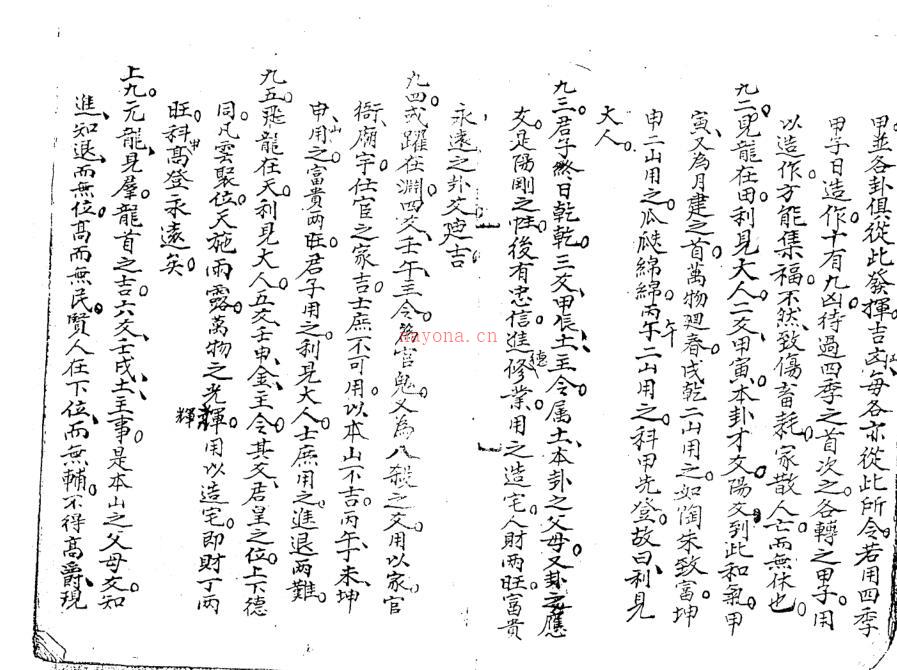 甲並各卦俱從此發揮吉凶每各亦從此所令若用四季
甲子日造作十有九凶待過四季之首次之各轉之甲子用
以造作方能集福不然致傷畜耗家散人亡而無休也
九二見龍在田利見大人二爻甲寅本卦才爻陽爻到此和氣甲
寅又為月建之首萬物廻春戌乾二山用之如陶朱致富坤
申二山用之瓜瓞綿綿丙午二山用之科甲先登故曰利見
大人
九三君子終日乾乾三爻甲辰土主令属土本卦之父母又卦之應
爻是陽剛之性後有忠信進德修業用之造宅人財兩旺富貴
永遠之卦爻廸吉
九四或躍在淵四爻壬午主令為官鬼又為八殺之爻用以家官
衙廟宇仕宦之家吉士庶不可用以本山不吉丙午丁未坤
申山用之富貴兩旺君子用之利見大人士庶用之進退兩難
九五飛龍在天利見大人五爻壬申金主令其爻君皇之位上下德
同凡雲聚位天施雨露萬物之光輝用以造宅即財丁兩
旺科甲高登永遠矣
上九元龍見羣龍首之吉六爻壬戌土主事是本山之父母爻知
進知退而無位高而無民賢人在下位而無輔不得高爵現
nayona.cn